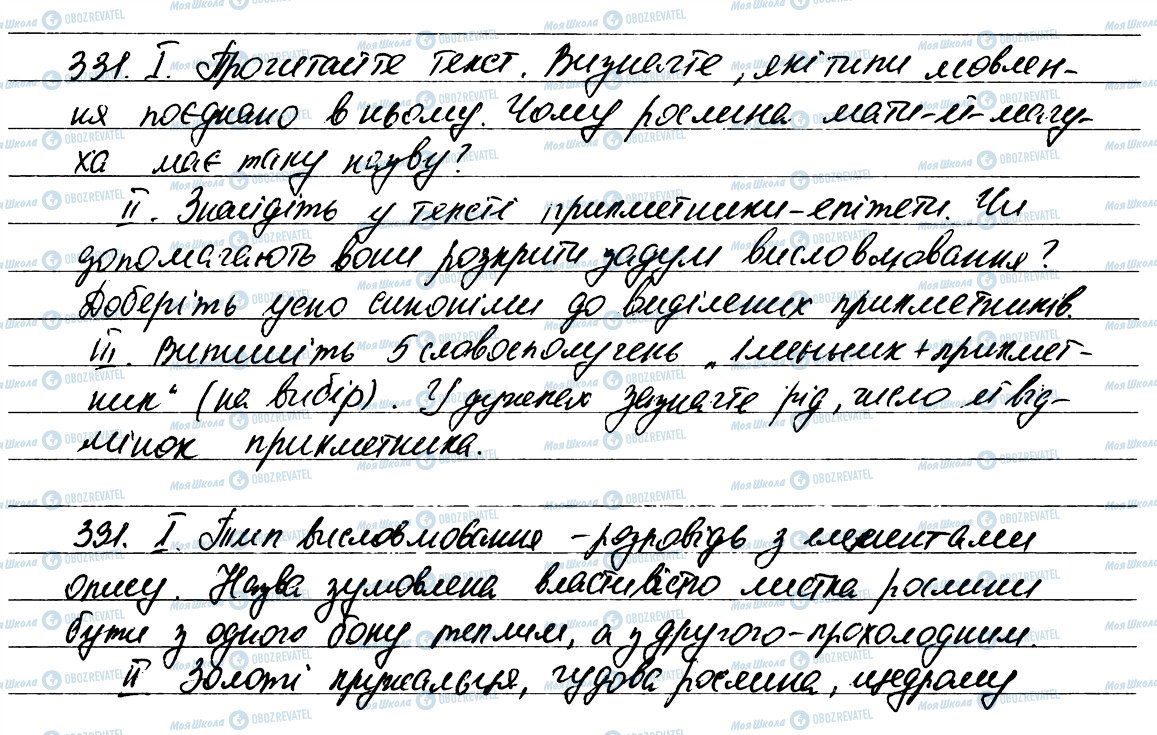 331. I. Прочитайте текст. Визначте, які типи мовлен-
ня поєднано в ньому. Чому рослина мати-й-мачу-
ха має таку назву?
II. Знайдіть у тексті прикметники-епітети. Чи
допомагають вони розкрити задум висловлювання?
Доберіть усно синоніми до виділених прикметників.
III. Випишіть 5 словосполучень „іменник + прикмет-
ник“ (на вибір). У дужках зазначте рід, число й від-
мінок прикметника.
331. I. Тип висловлювання - розповідь з елементами
опису. Назва зумовлена властивістю листка рослини
бути з одного боку теплим, а з другого - прохолодним.
II Золоті кружальця, чудова рослина, щедрому